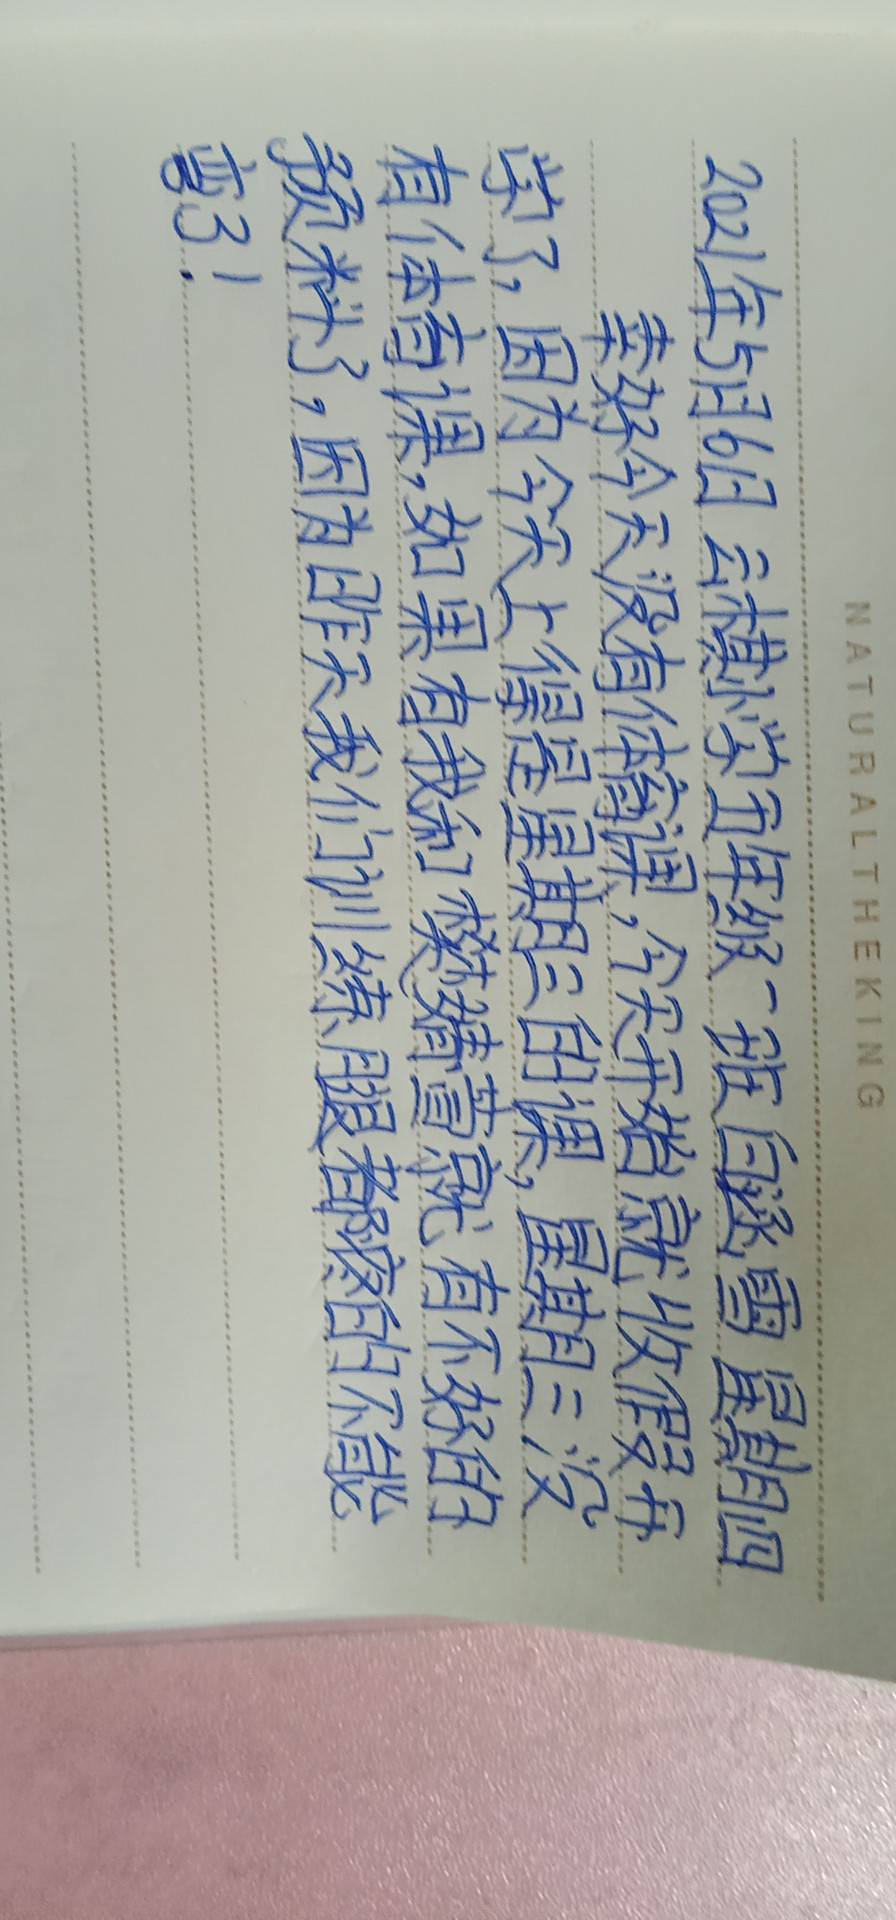 NATURALTHEKING
2021年5月6日 云横小学五年级一班 白逐雪 星期四
幸好今天没有体育课,今天开始就收假升
学了,因为今天上得是星期三的课,星期三没
有体育课,如果有我和楚婧萱就有不好的
预料了,因为昨天我们训练腿都疼的不能
弯了!